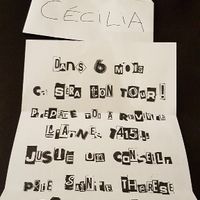 CÉCILIA
DANS 6 MOIS
CE SERA TON TOUR!
PREPARE TOI A REVIVRE
JUSTE UN CONSEIL
PRIE SAINTE THERESE